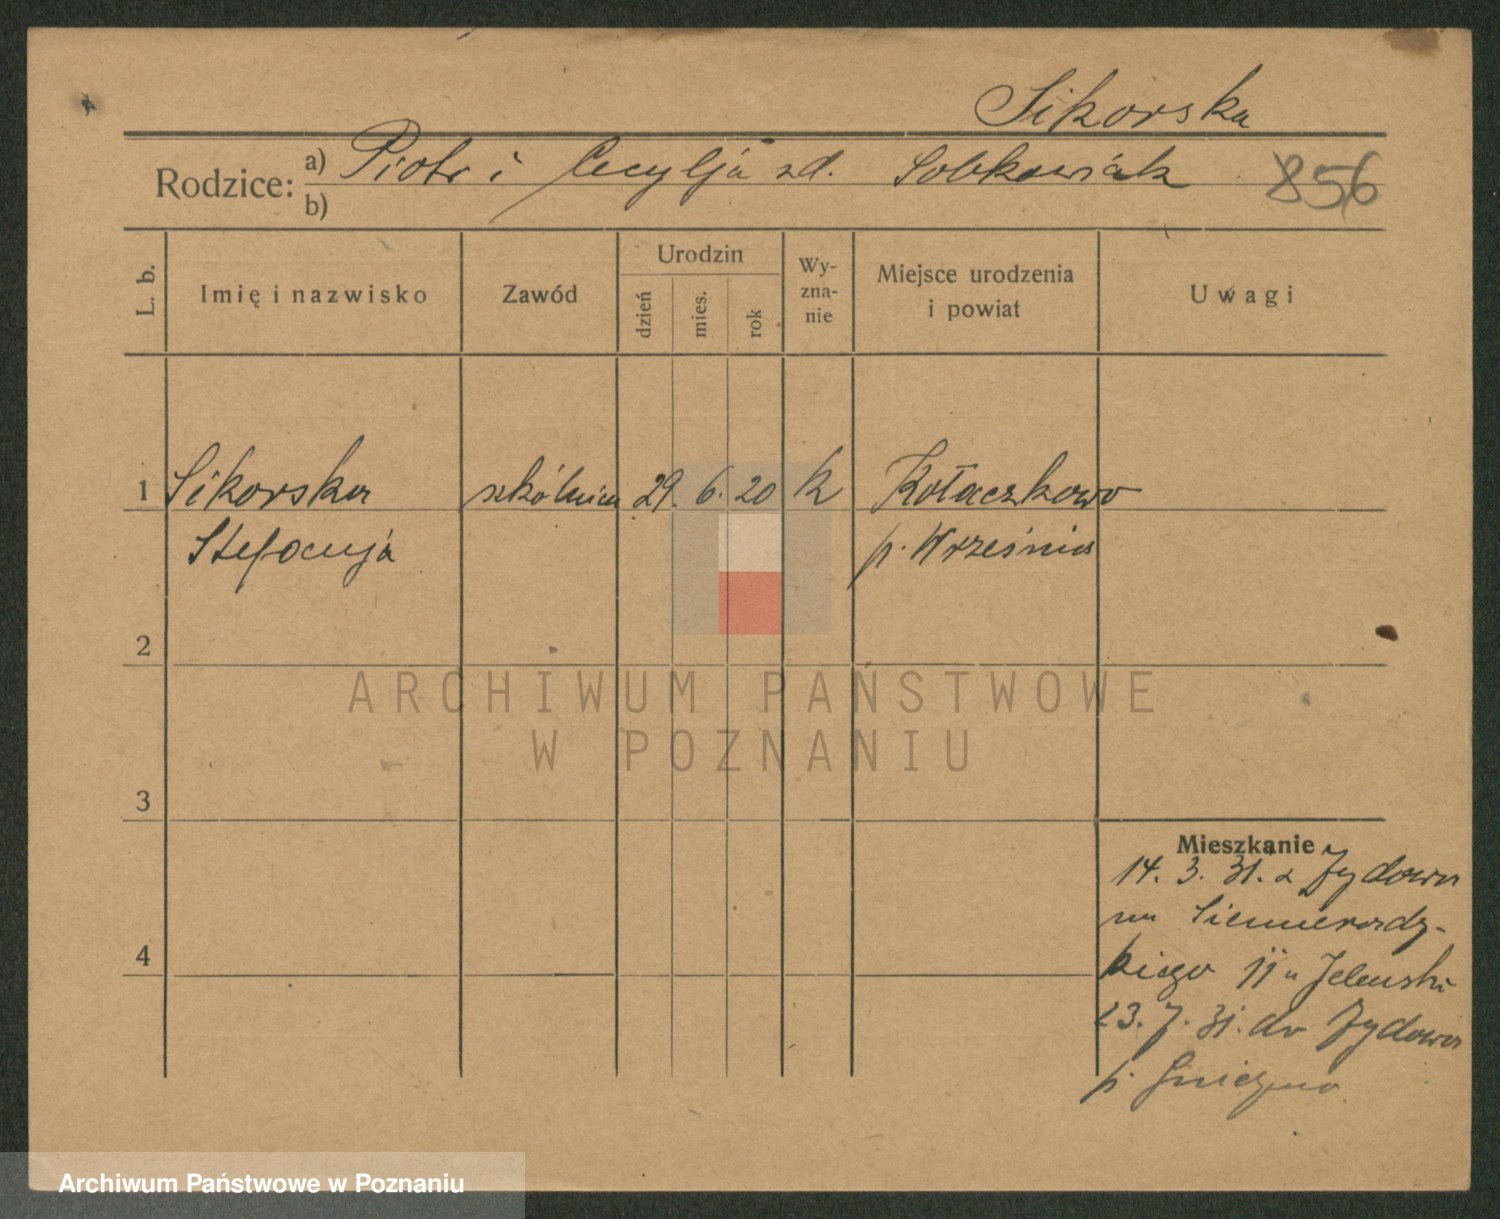 Sikorska
Rodzice: a) Piotr i Cecylja zd. Sobkowiak 856
b)
L. b. Imię i nazwisko Zawód Urodzin dzień mies. rok Wy-zna-nie Miejsce urodzenia i powiat Uwagi
1 Sikorska szkólnica 29. 6. 20 k Kołaczkowo
Stefanja p. Września
2
ARCHIWUM PAŃSTWOWE
W POZNANIU
3
Mieszkanie
14. 3. 31. z Żydowa
na
4 II u Jelewski
23. 7. 31. do Żydowa
p. Gniezno
Archiwum Państwowe w Poznaniu